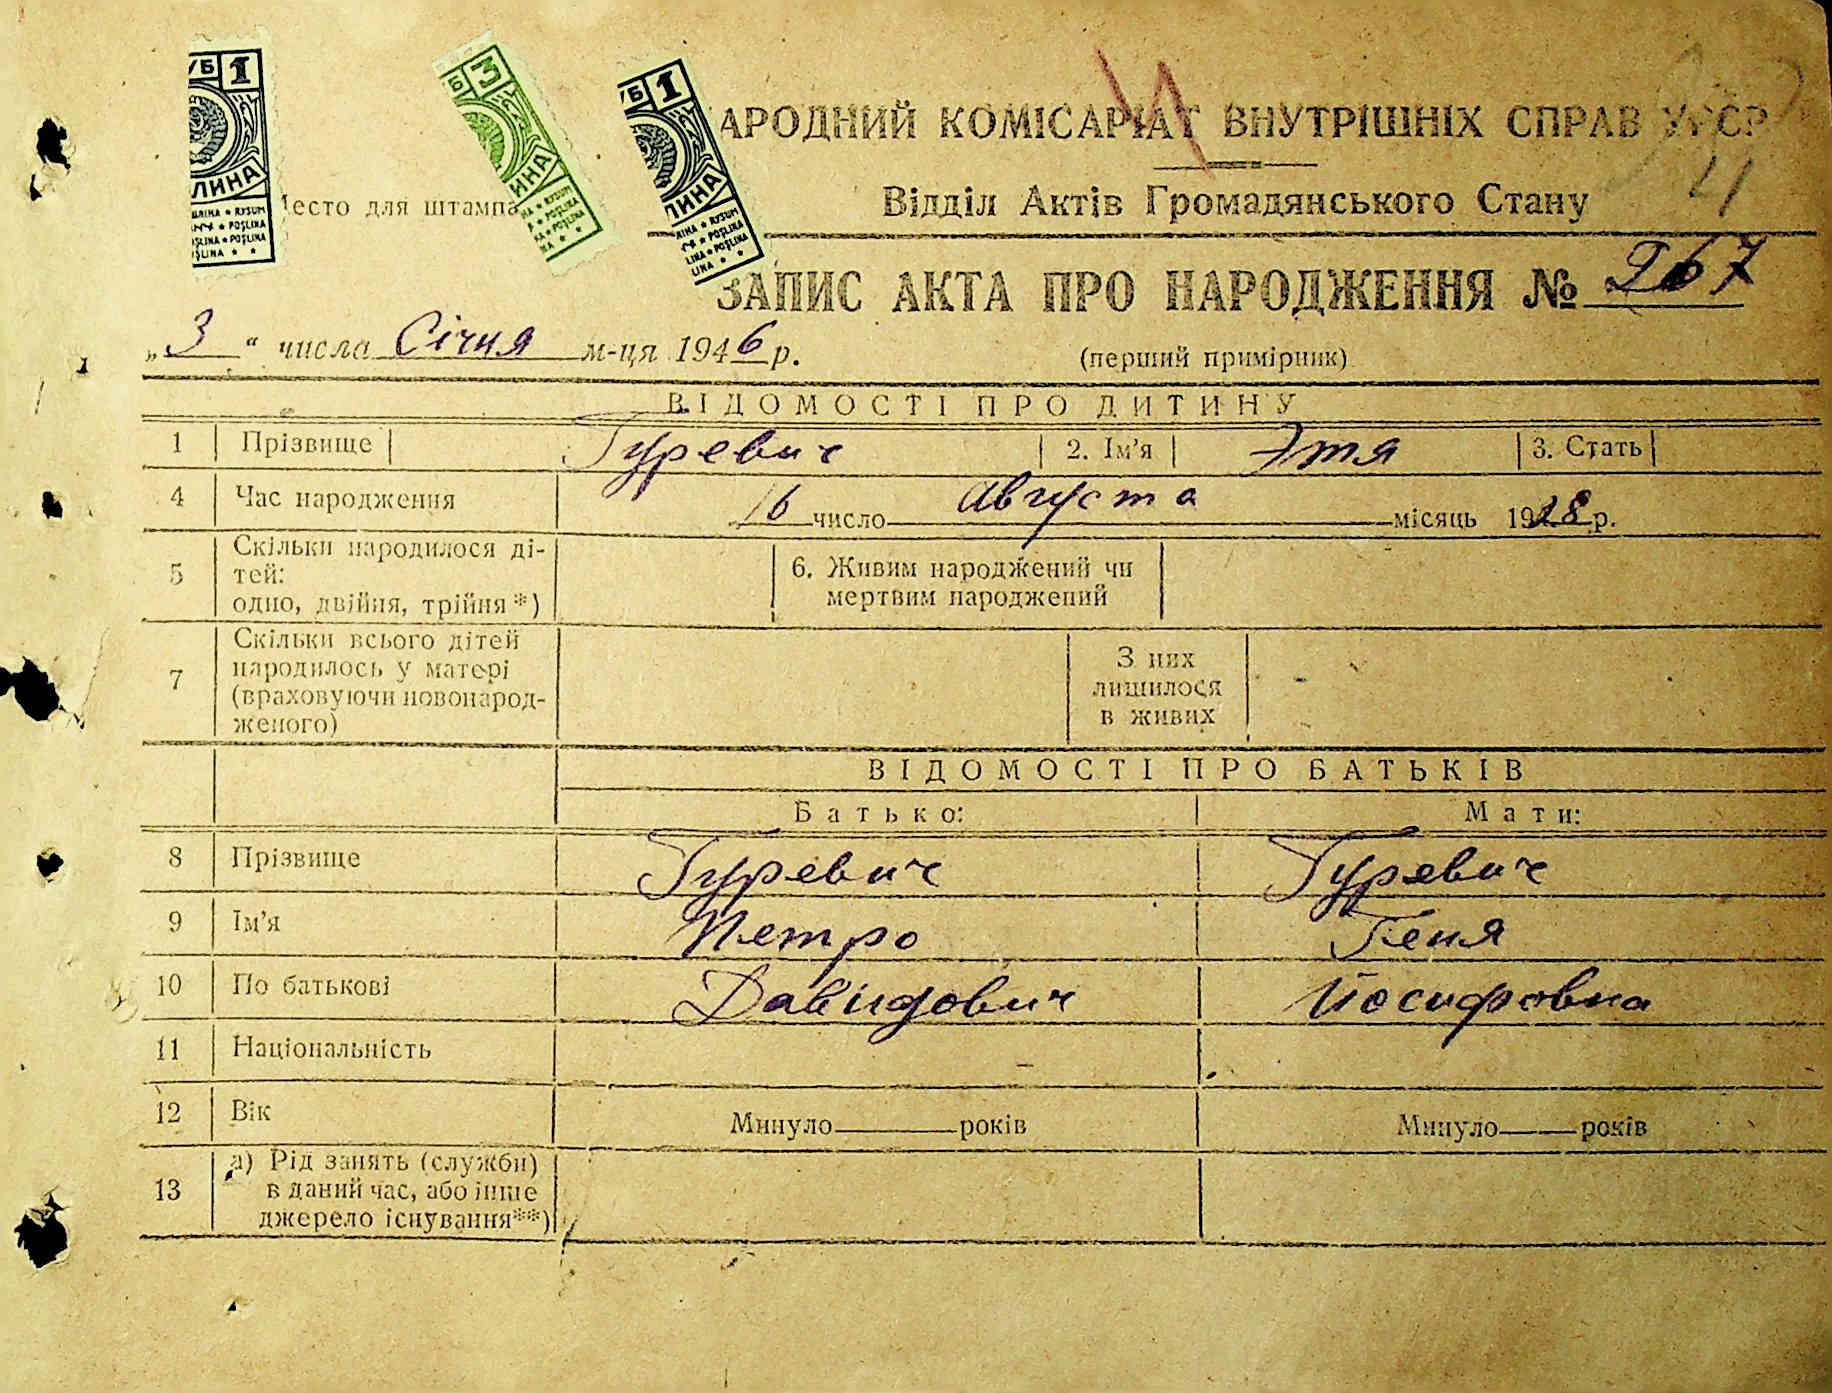 УБ 1
ЛИНА
RYSUM
POŞLINA
POŞLINA
УБ 3
ИНА
RYSUM
POŞLINA
POŞLINA
УБ 1
ЛИНА
RYSUM
POŞLINA
POŞLINA
АРОДНИЙ КОМІСАРІАТ ВНУТРІШНІХ СПРАВ УРСР
Место для штампа
Відділ Актів Громадянського Стану
ЗАПИС АКТА ПРО НАРОДЖЕННЯ № 267
„3“ числа Січня м-ця 1946 р.
(перший примірник)
ВІДОМОСТІ ПРО ДИТИНУ
1 Прізвище Гуревич 2. Ім'я Этя 3. Стать
4 Час народження 16 число Августа місяць 1928 р.
5 Скільки народилося ді-
тей:
одно, двійня, трійня*)
6. Живим народжений чи
мертвим народжений
7 Скільки всього дітей
народилось у матері
(враховуючи новонарод-
женого)
З них
лишилося
в живих
ВІДОМОСТІ ПРО БАТЬКІВ
Батько: Мати:
8 Прізвище Гуревич Гуревич
9 Ім'я Петро Геня
10 По батькові Давидович Йосифовна
11 Національність
12 Вік Минуло років Минуло років
13 а) Рід занять (служби)
в даний час, або інше
джерело існування**)